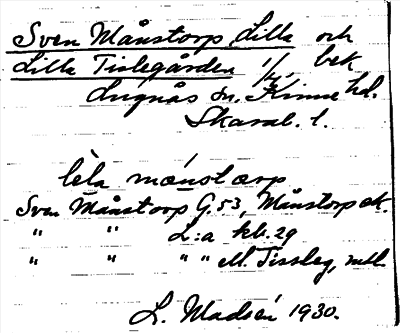 Sven Månstorp, Lilla och
Lilla Tislegården 1/4 bek.
Lugnås sn. Kinne hd.
Skarab. l.
lèla mænstærp
Sven Månstorp G. 53, Månstorp ek.
" " L:a kb. 29
" " " " M. Tissleg,
L. Madsén 1930.